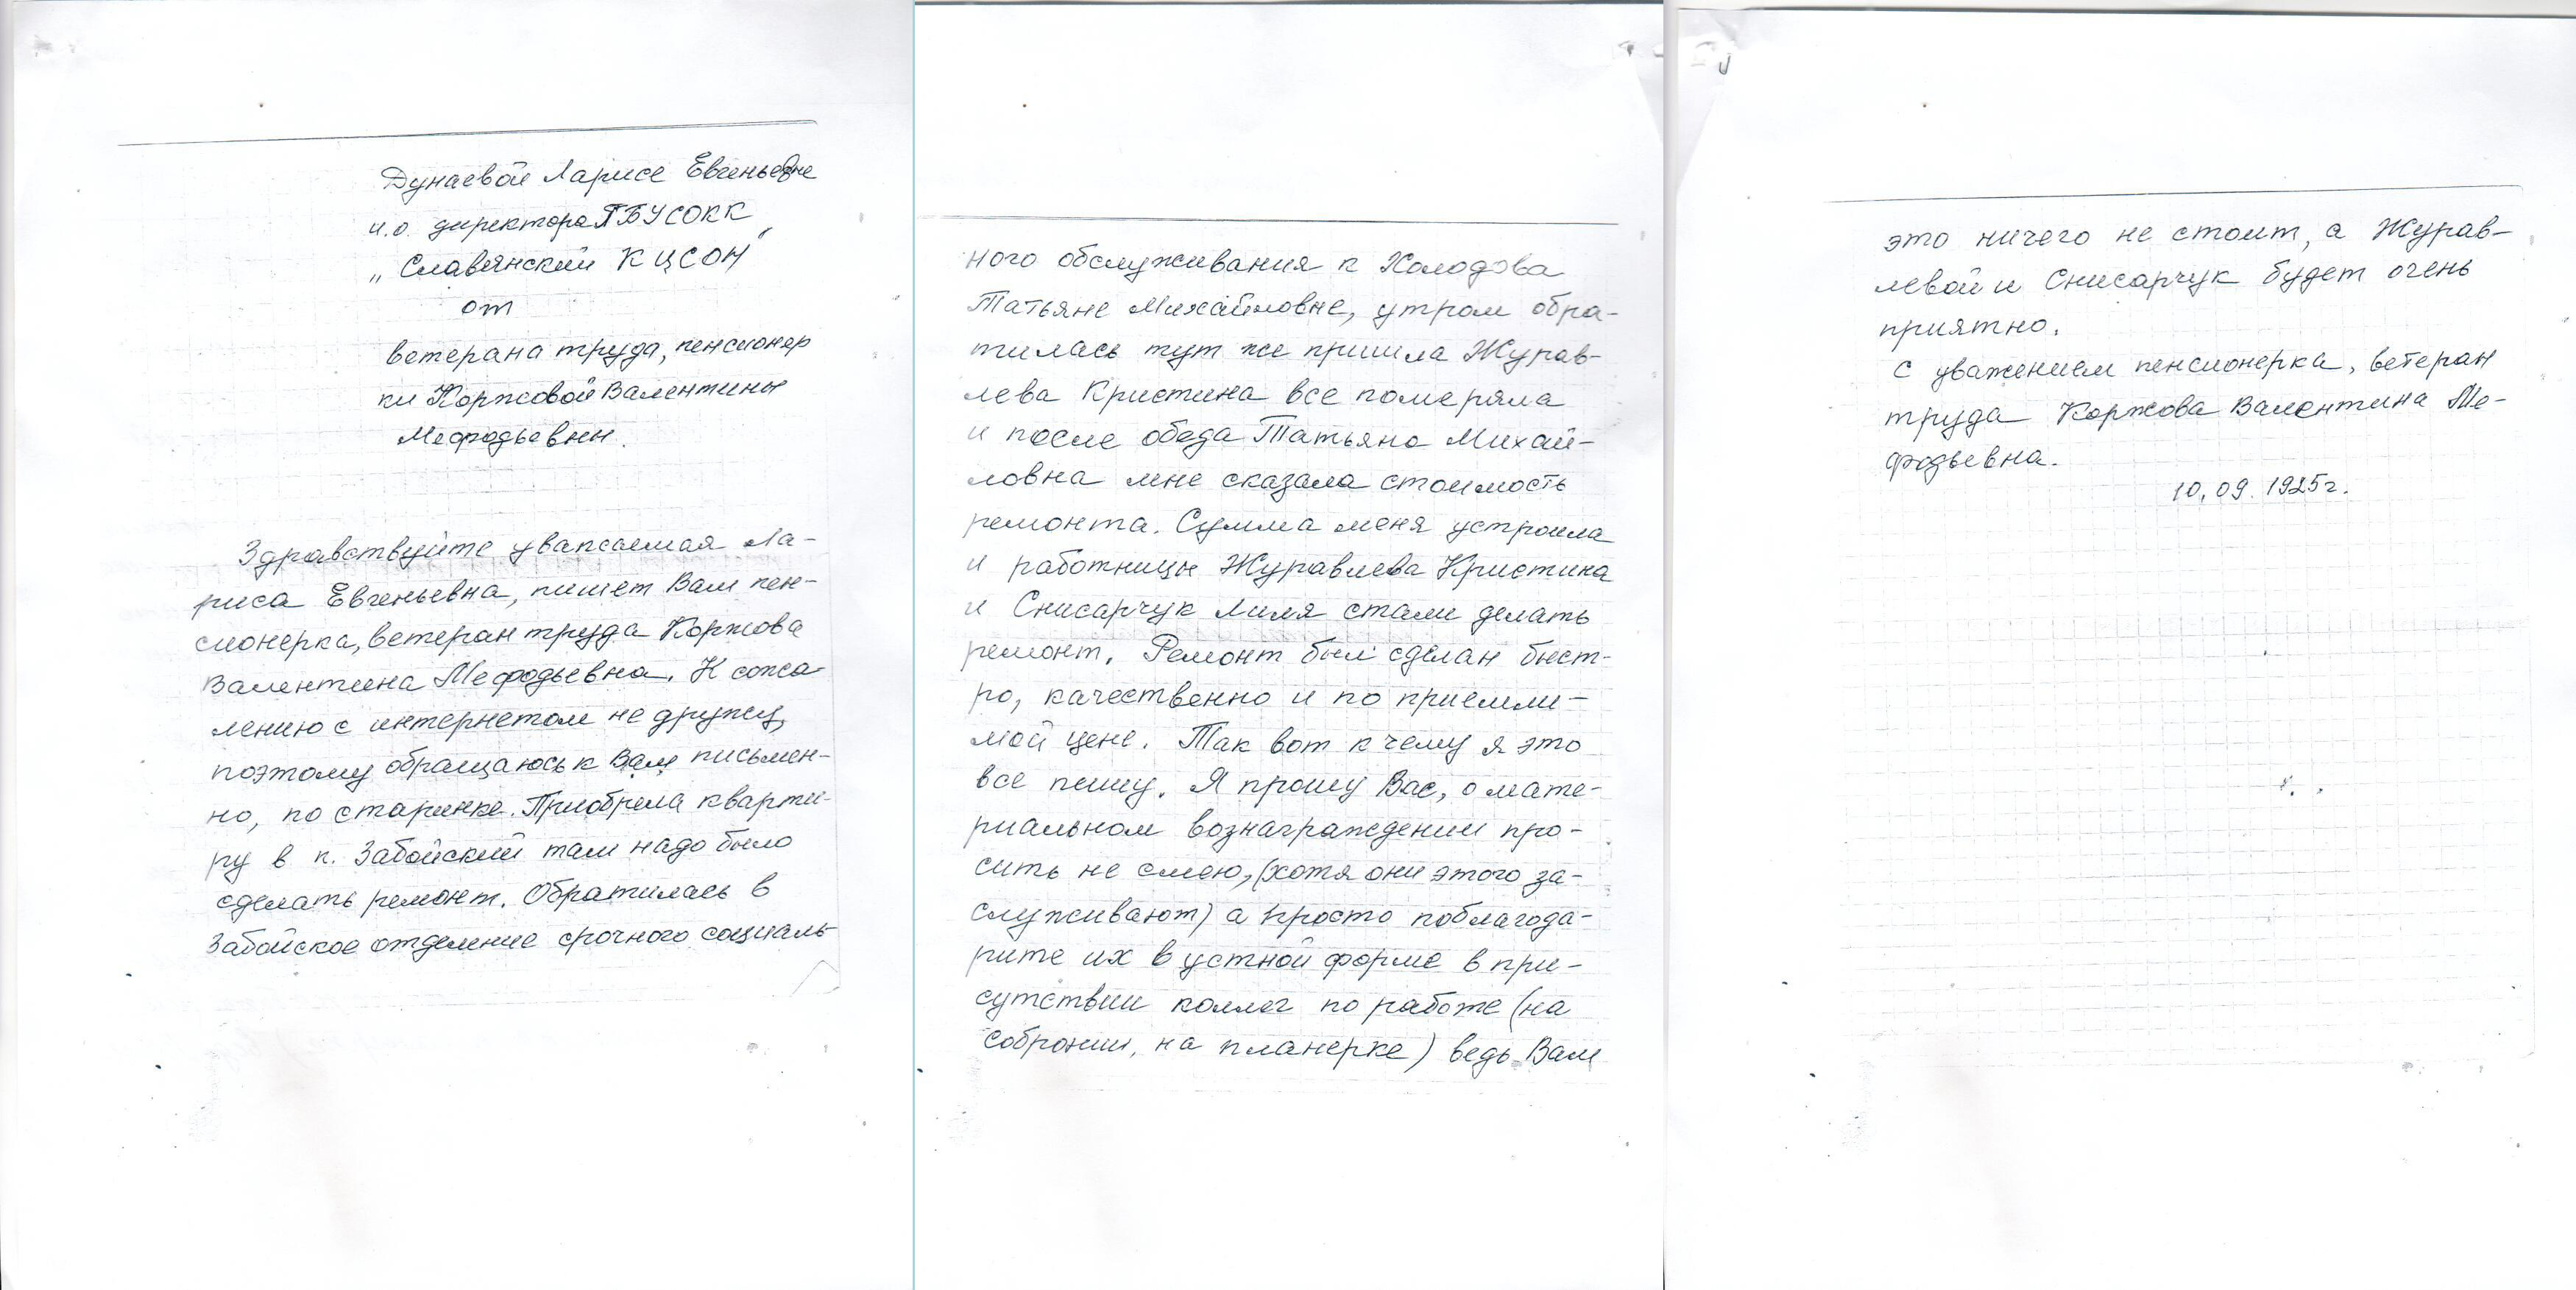 Дунаевой Ларисе Евгеньевне
и.о. директора ГБУСОКК
„Славянский КЦСОН"
от
ветерана труда, пенсионер
ки Коржовой Валентины
Мефодьевны.
Здравствуйте уважаемая Ла-
риса Евгеньевна, пишет Вам пен-
сионерка, ветеран труда Коржова
Валентина Мефодьевна. К сожа-
лению с интернетом не дружу,
поэтому обращаюсь к Вам письмен-
но, по старинке. Приобрела кварти-
ру в п. Забойский там надо было
сделать ремонт. Обратилась в
Забойское отделение срочного социаль-
ного обслуживания к Холодова
Татьяне Михайловне, утром обра-
тилась тут же пришла Журав-
лева Кристина все померяла
и после обеда Татьяна Михай-
ловна мне сказала стоимость
ремонта. Сумма меня устроила
и работницы Журавлева Кристина
и Снисарчук Лиля стали делать
ремонт. Ремонт был сделан быст-
ро, качественно и по приемли-
мой цене. Так вот к чему я это
все пишу. Я прошу Вас, о мате-
риальном вознаграждении про-
сить не смею, (хотя они этого за-
служивают) а просто поблагода-
рите их в устной форме в при-
сутствии коллег по работе (на
собрании, на планерке) ведь Вам
это ничего не стоит, а Журав-
левой и Снисарчук будет очень
приятно.
С уважением пенсионерка, ветеран
труда Коржова Валентина Ме-
фодьевна.
10.09.1925г.